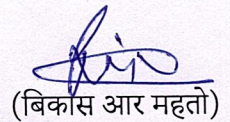 (बिकास आर महतो)